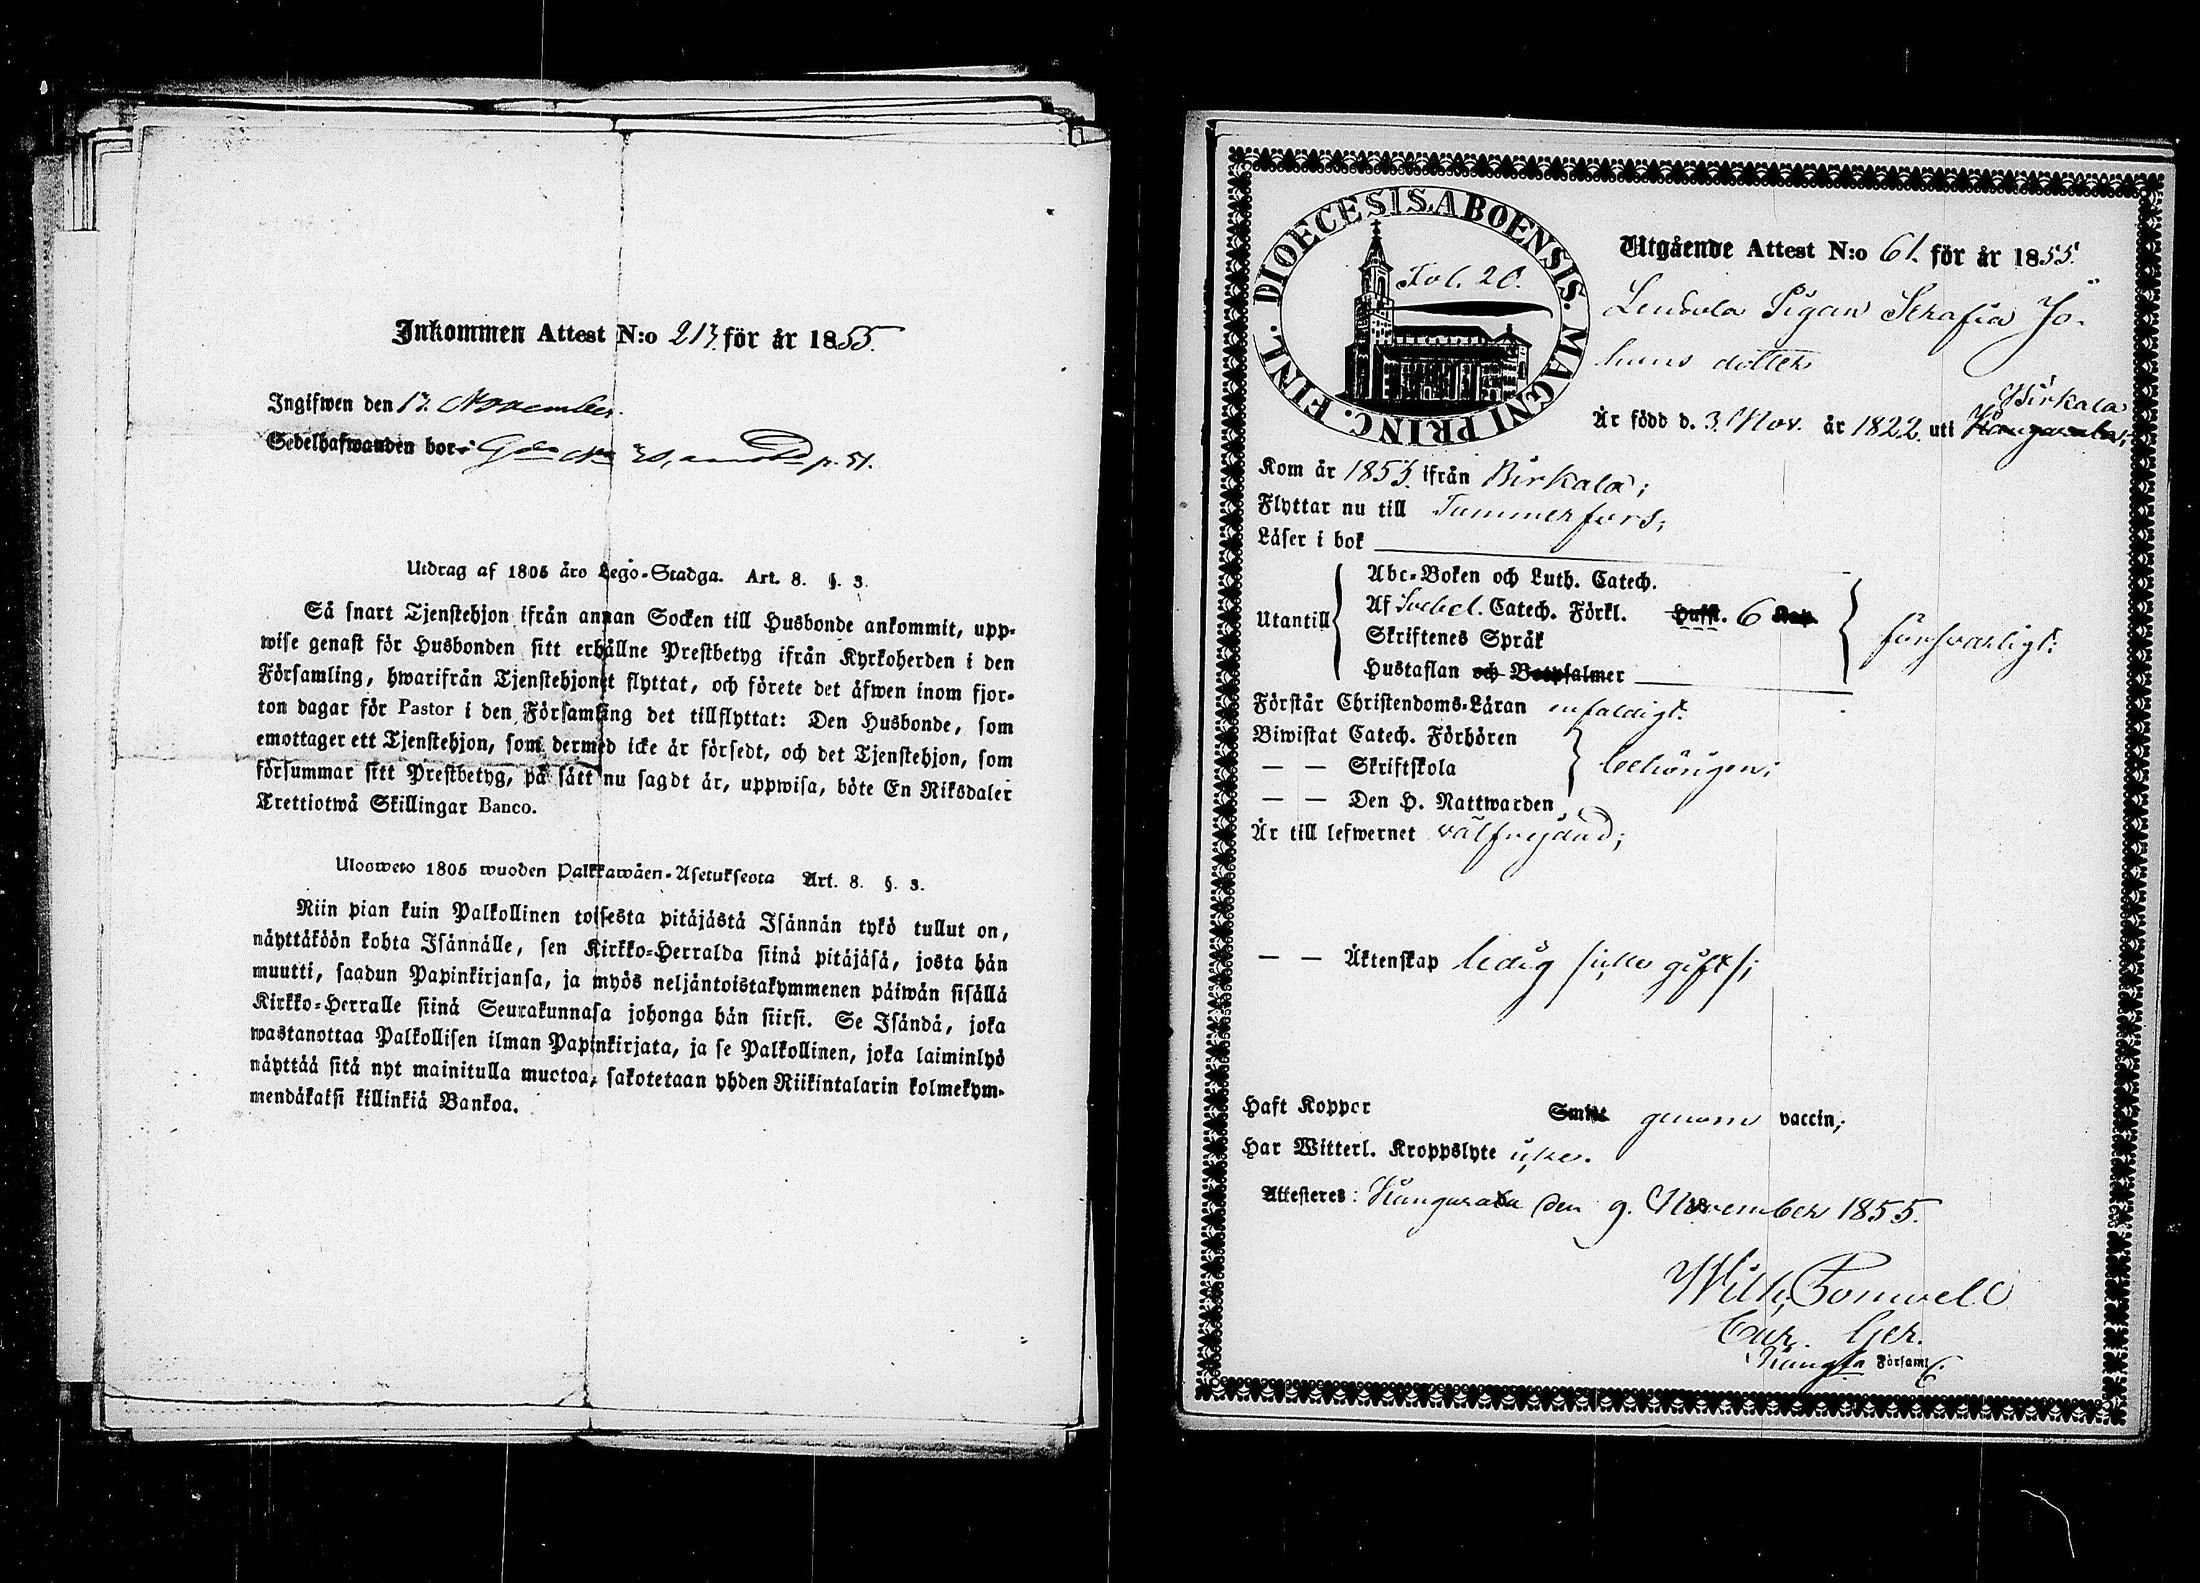 Inkommen Attest N:o 213 för år 1855.
Ingifwen den 17. November.
Sedelhafwanden bor: p. 51.
Utdrag af 1805 års Lego-Stadga. Art. 8. §. 3.
Så snart Tjenstehjon ifrån annan Socken till Husbonde ankommit, upp-
wise genast för Husbonden sitt erhållne Prestbetyg ifrån Kyrkoherden i den
Församling, hwarifrån Tjenstehjonet flyttat, och förete det äfwen inom fjor-
ton dagar för Pastor i den Församling det tillflyttat: Den Husbonde, som
emottager ett Tjenstehjon, som dermed icke är försedt, och det Tjenstehjon, som
försummar sitt Prestbetyg, på sätt nu sagdt är, uppwisa, böte En Riksdaler
Trettiotwå Skillingar Banco.
Ulosweto 1805 wuoden Palkkawäen-Asetuksesta Art. 8. §. 3.
Niin pian kuin Palkollinen toisesta pitäjästä Isännän tykö tullut on,
näyttäköön kohta Isännälle, sen Kirkko-Herralda siinä pitäjäsä, josta hän
muutti, saadun Papinkirjansa, ja myös neljäntoistakymmenen päiwän sisällä
Kirkko-Herralle siinä Seurakunnasa johonga hän siirsi. Se Isändä, joka
wastanottaa Palkollisen ilman Papinkirjata, ja se Palkollinen, joka laiminlyö
näyttää sitä nyt mainitulla muotoa, sakotetaan yhden Riikintalarin kolmekym-
mendäkaksi killinkiä Bankoa.
DIOECESIS. ABOENSIS. MAGNI PRINC. FINL.
Fol. 20.
Utgående Attest N:o 61. för år 1855.
Pigan Serafia Jo-
hans dotter
Birkala
Är född d. 3. Nov. år 1822. uti Kangasala;
Kom år 1855. ifrån Birkala;
Flyttar nu till Tammerfors;
Läser i bok
Utantill
Abc-Boken och Luth. Catech.
Af Svebel. Catech. Förkl. Hufst. 6 Kap.
Skriftenes Språk
Hustaflan och Botpsalmer
försvarligt;
Förstår Christendoms-Läran enfaldigt.
Biwistat Catech. Förhören
— — Skriftskola
— — Den H. Nattwarden
behörigen;
Är till lefwernet välfrejdad;
— — Äktenskap ledig /icke gift/;
Haft Koppor Smitt genom vaccin;
Har Witterl. Kroppslyte icke.
Attesteres: Kangasala den 9. November 1855.
Wilh.
Församl.